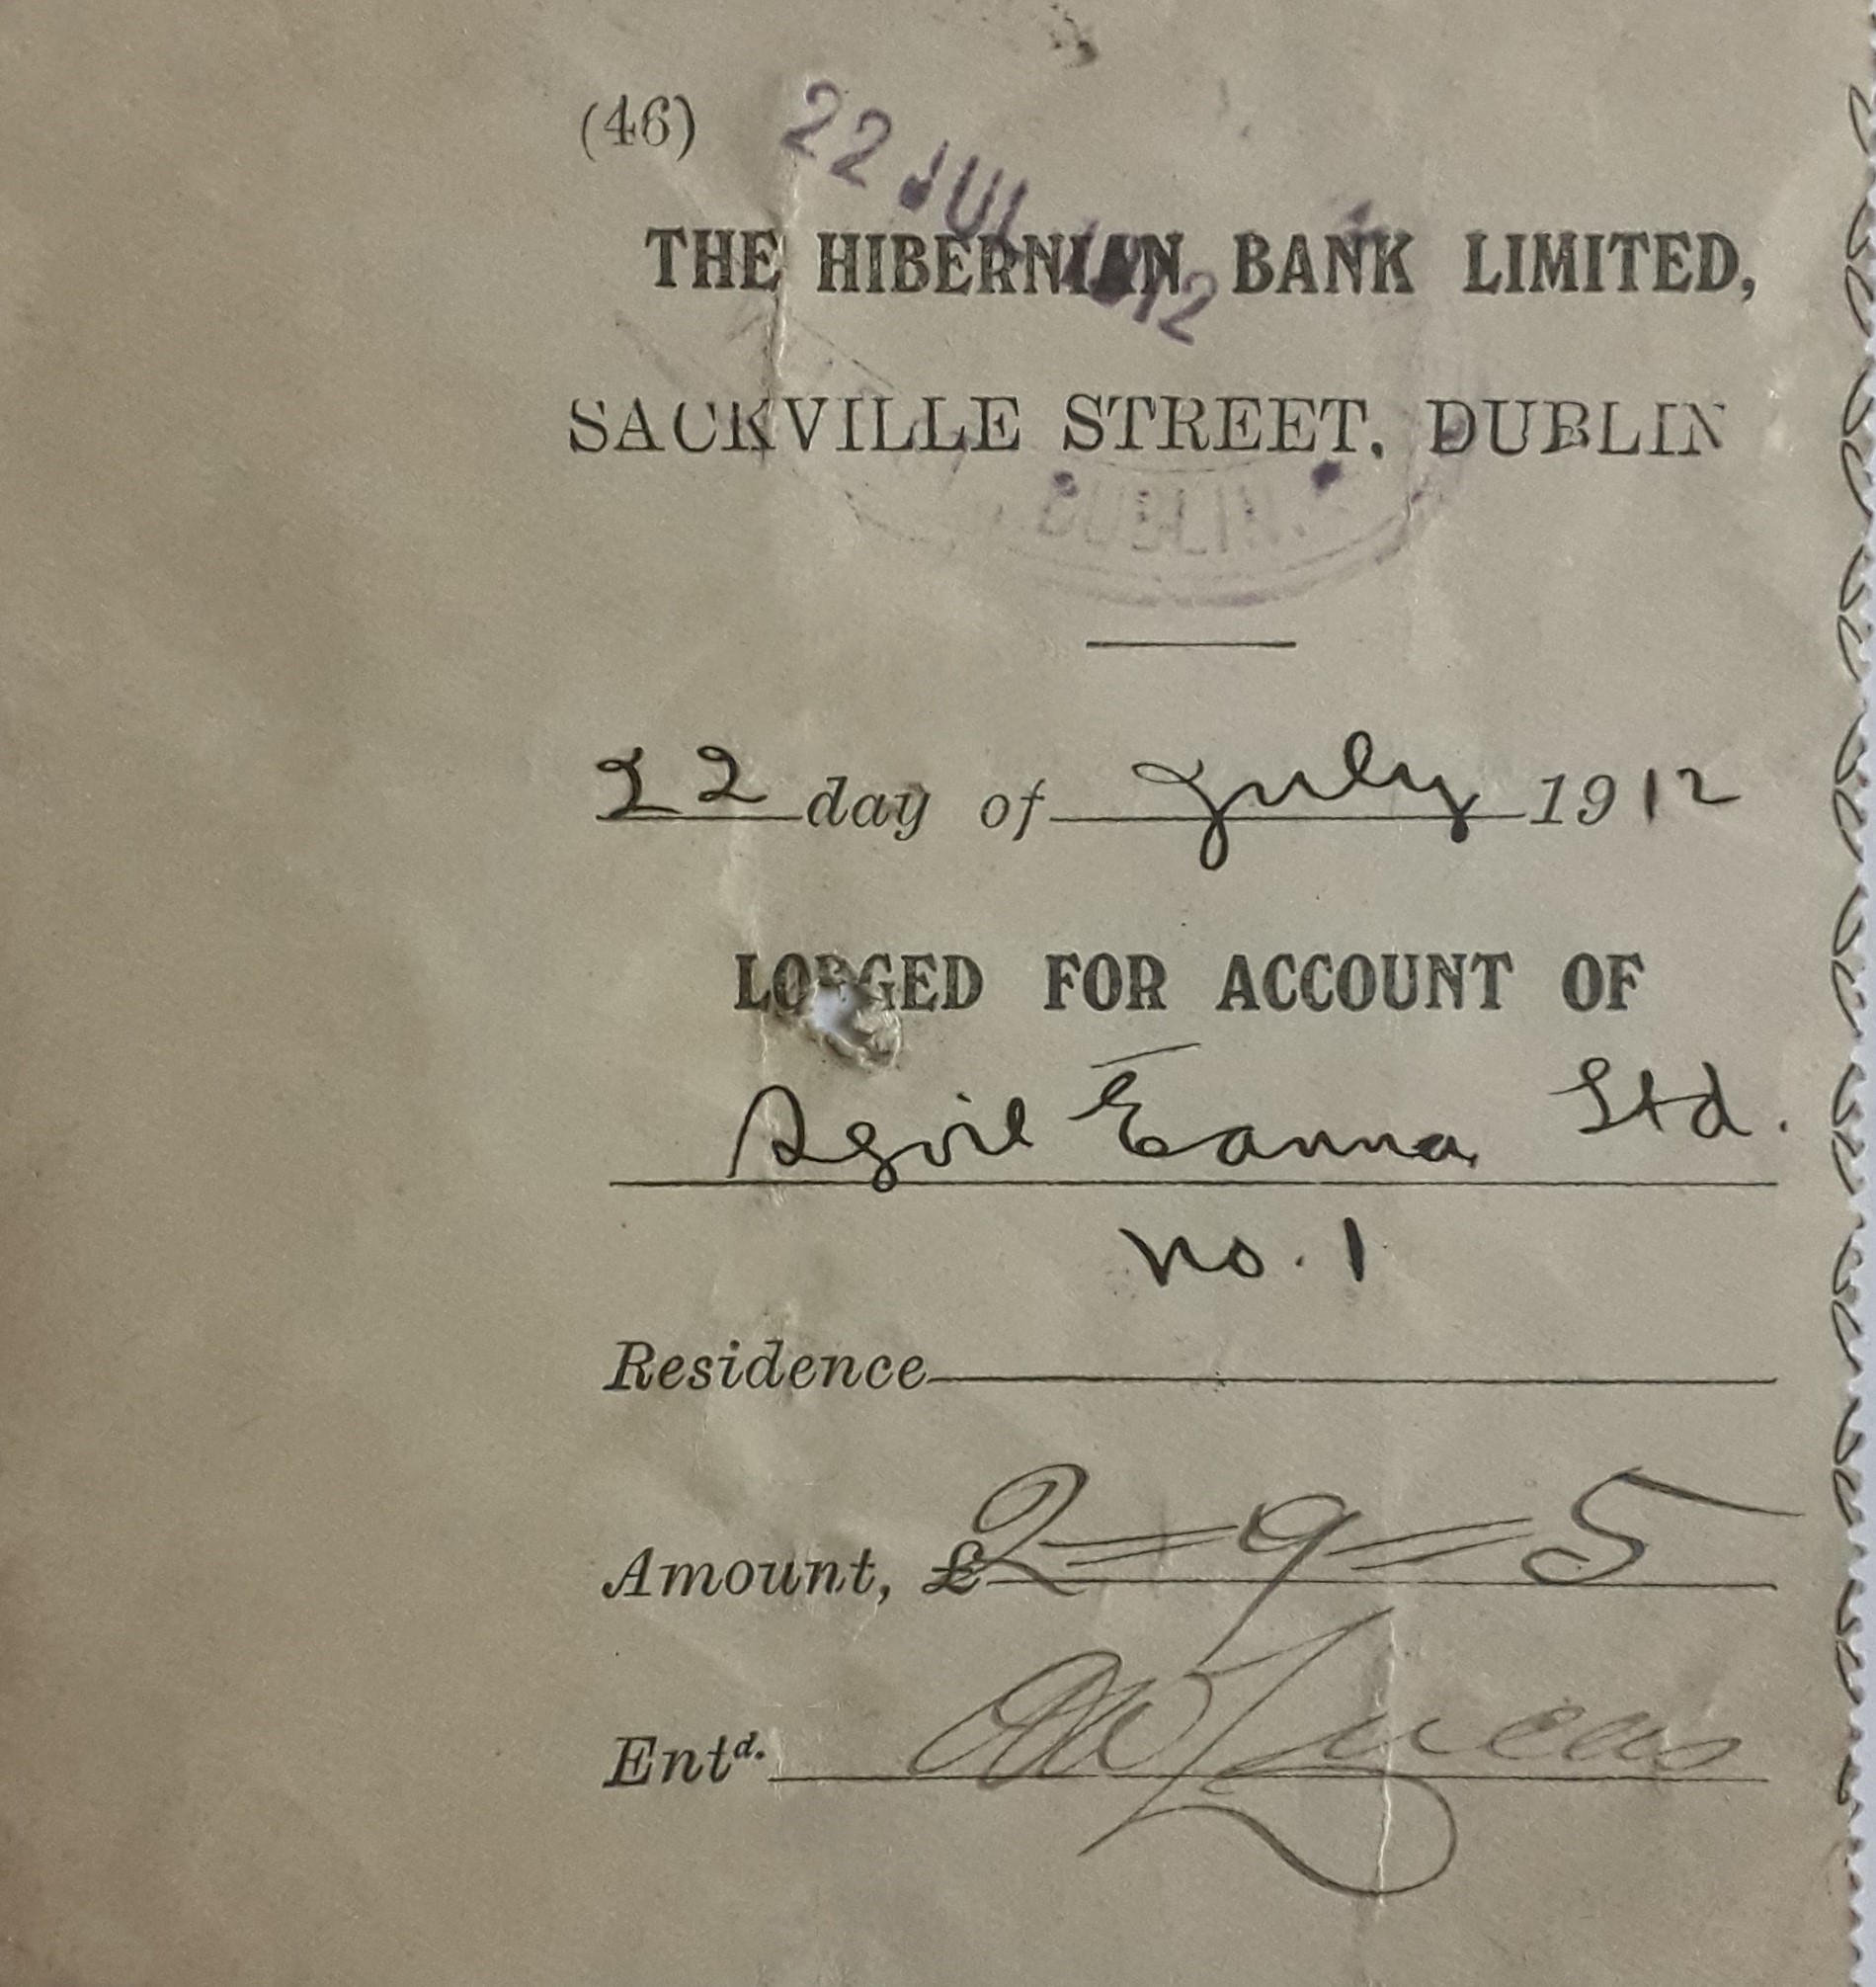 (46)
22 JUL 1912
THE HIBERNIAN BANK LIMITED,
SACKVILLE STREET, DUBLIN
DUBLIN
22 day of July 1912
LODGED FOR ACCOUNT OF
Sgoil Éanna Ltd.
No. 1
Residence
Amount, £2=9=5
Entd. Lucas